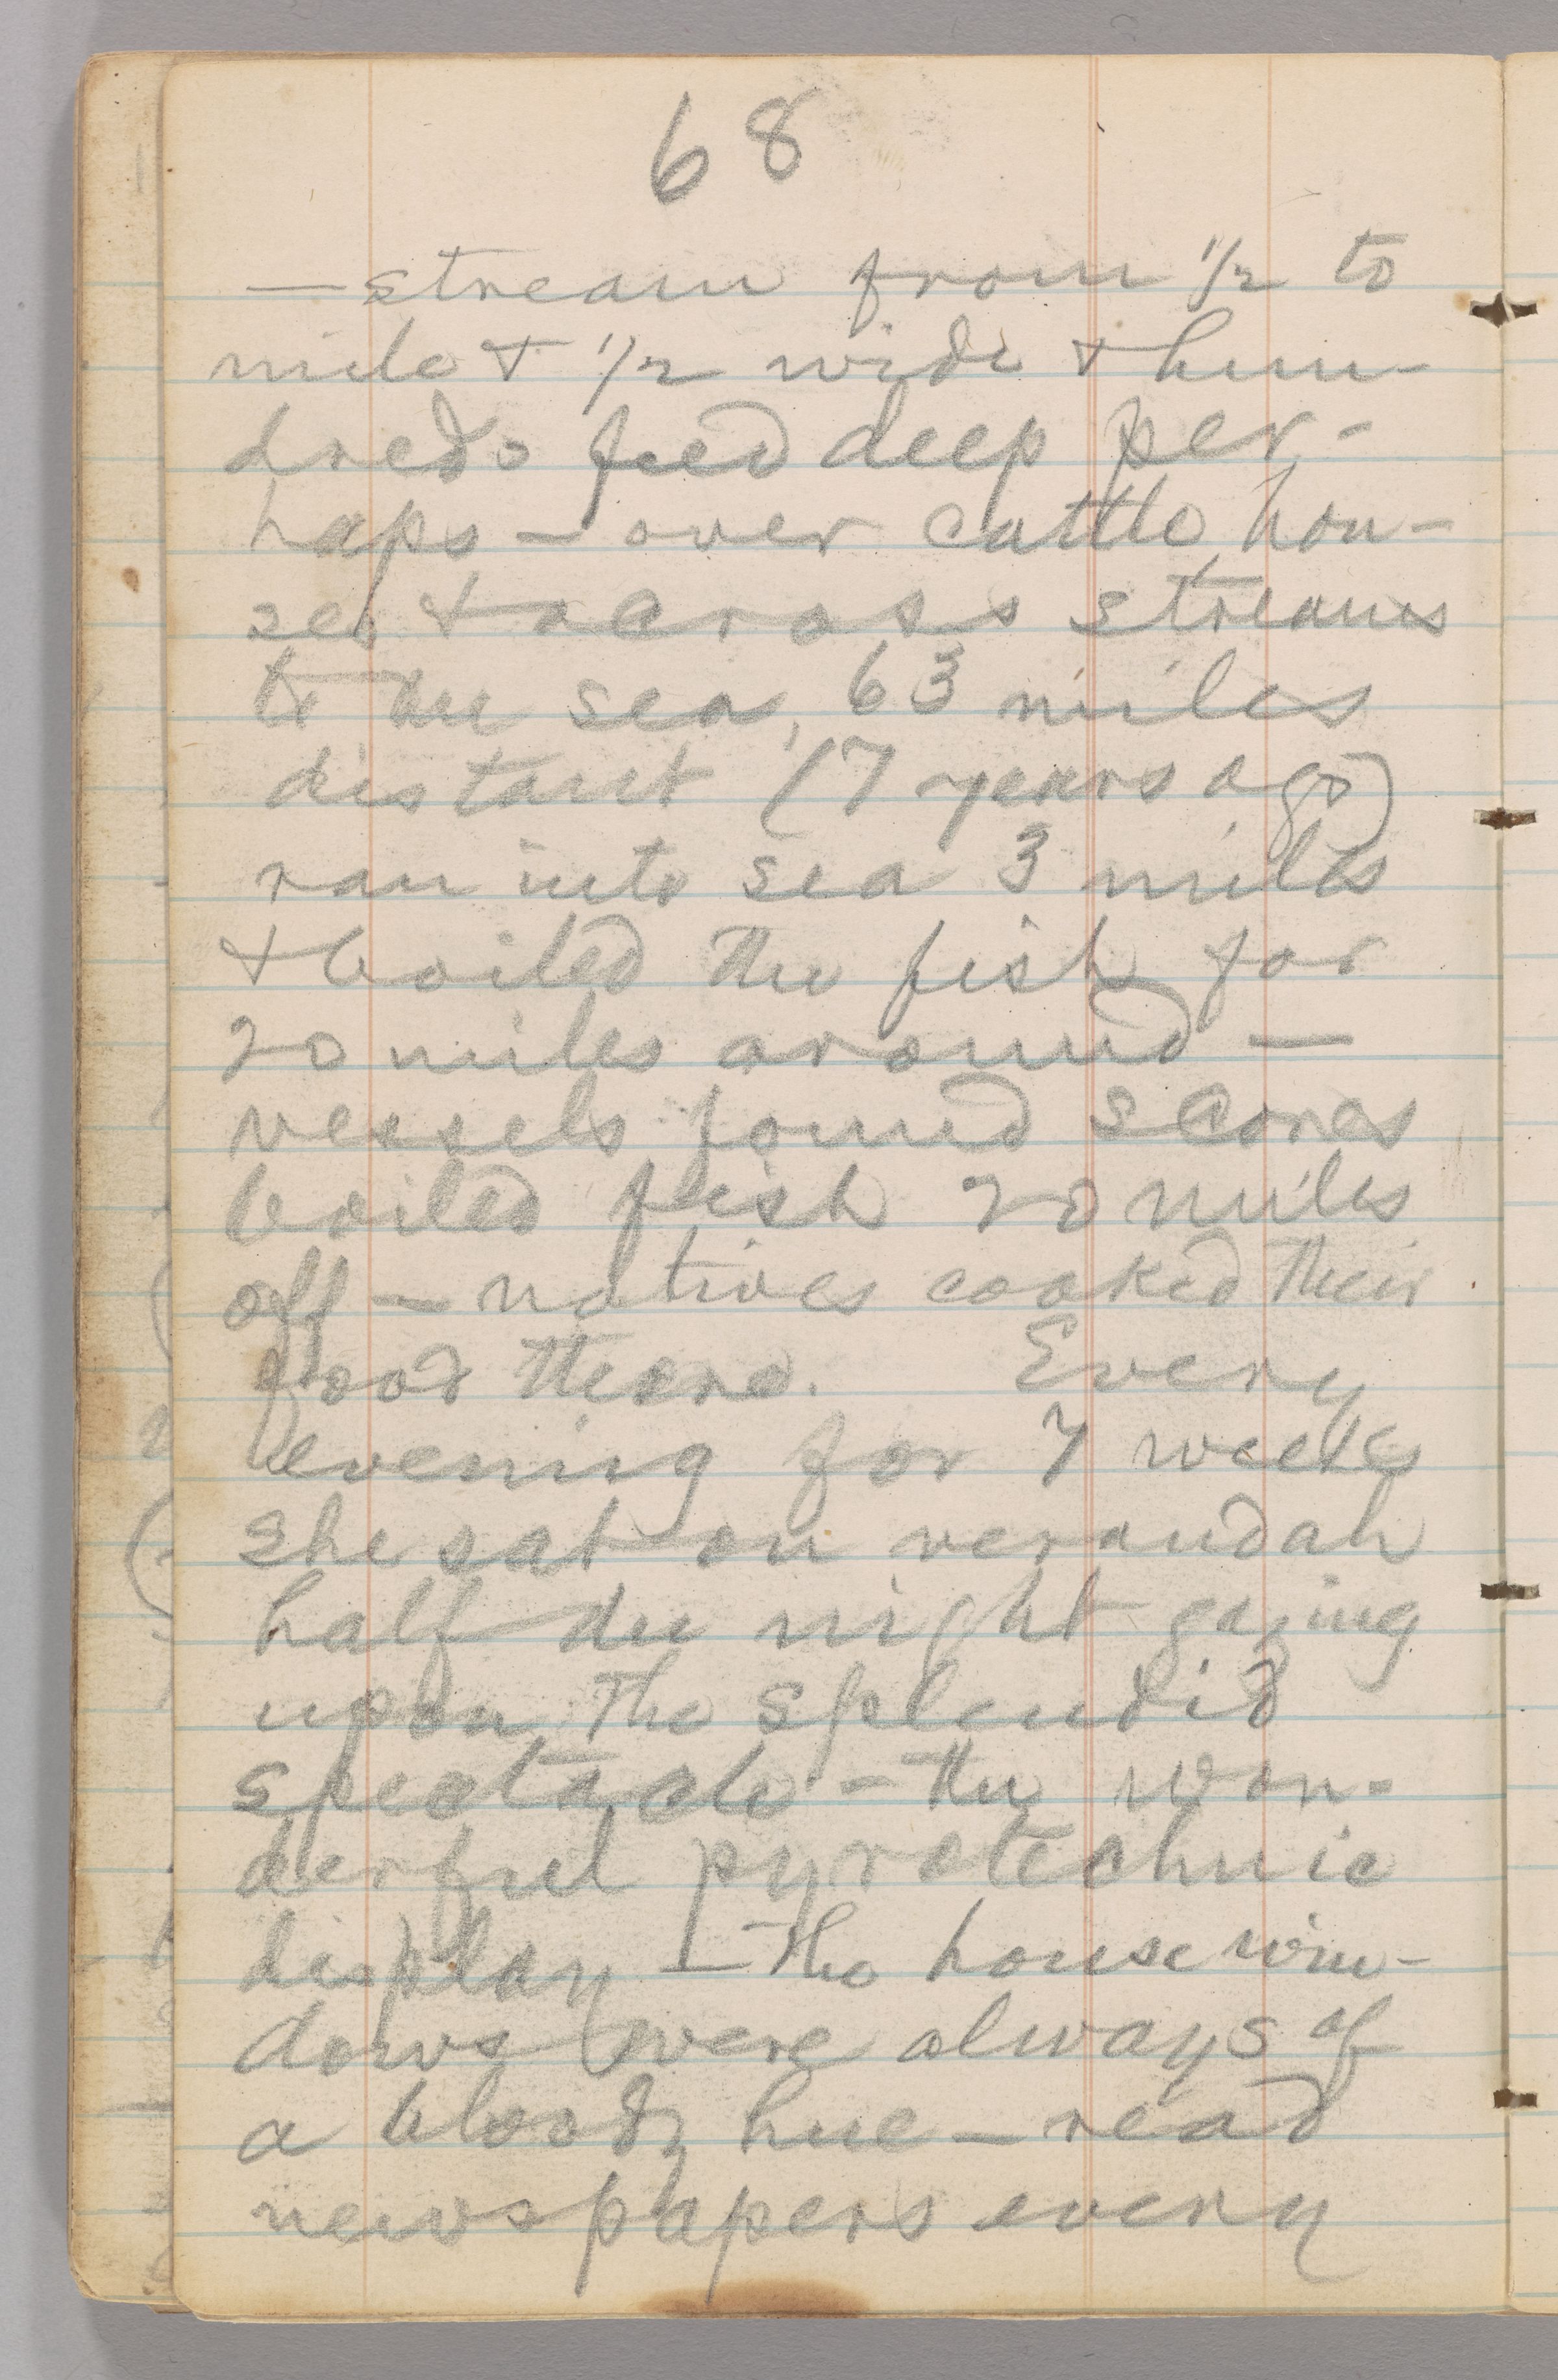 68
— stream from 1/2 to
mile & 1/2 wide & hun-
dreds feed deep per-
haps — over cattle, hou-
ses & across streams
to the sea, 63 miles
distant (7 years ago)
ran into sea 3 miles
& boiled the fish for
20 miles around —
vessels found scores
boiled fish 20 miles
off — natives cooked their
food there. Every
evening for 7 weeks
she sat on verandah
half the night gazing
upon the splendid
spectacle — the won-
derful pyrotechnic
display — the house win-
dows were always of
a bloody hue — read
newspapers every